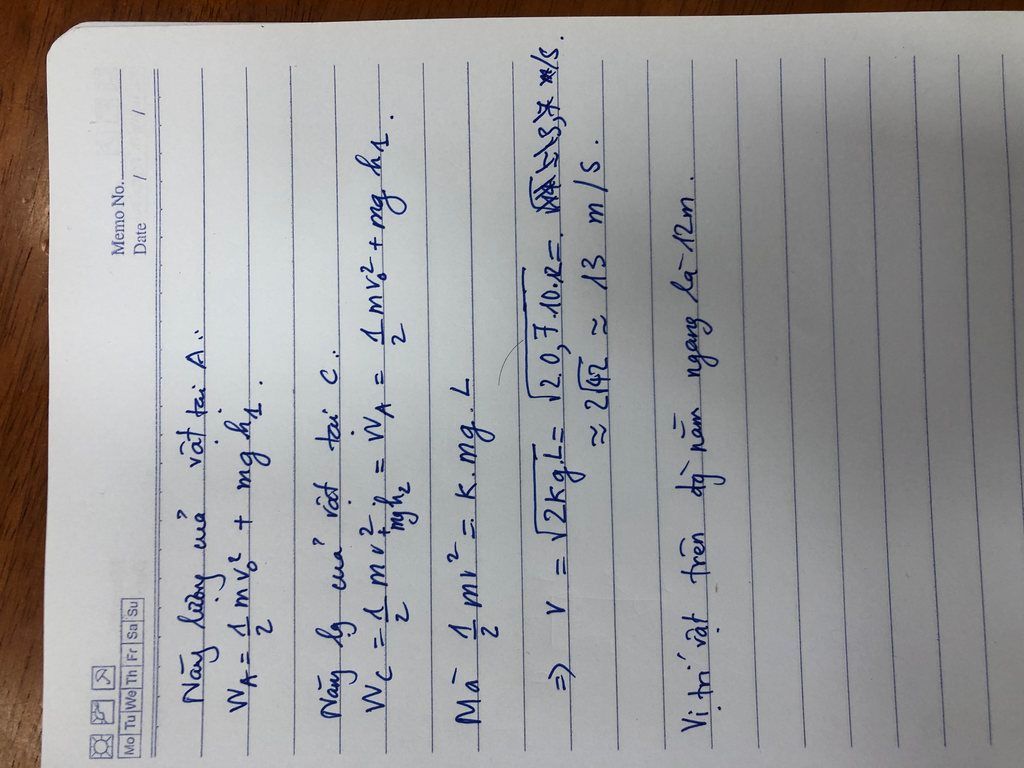 Memo No.
Mo Tu We Th Fr Sa Su
Date / /
Năng lượng của vật tại A:
W_A = 1/2 mv₀² + mgh₁.
Năng lg của vật tại C.
W_C = 1/2 mv² + mgh₂ = W_A = 1/2 mv₀² + mgh₁.
Mà 1/2 mv² = K.mg.L
=> v = √2kg.L = √2.0,7.10.12 = m/s.
≈ 2√42 ≈ 13 m/s.
Vị trí vật trên đg nằm ngang là 12m.